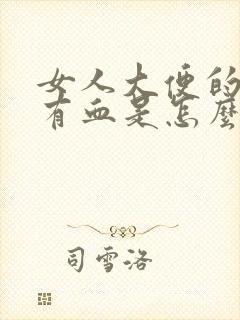 女人大便的
有血是怎麼
司雪洛